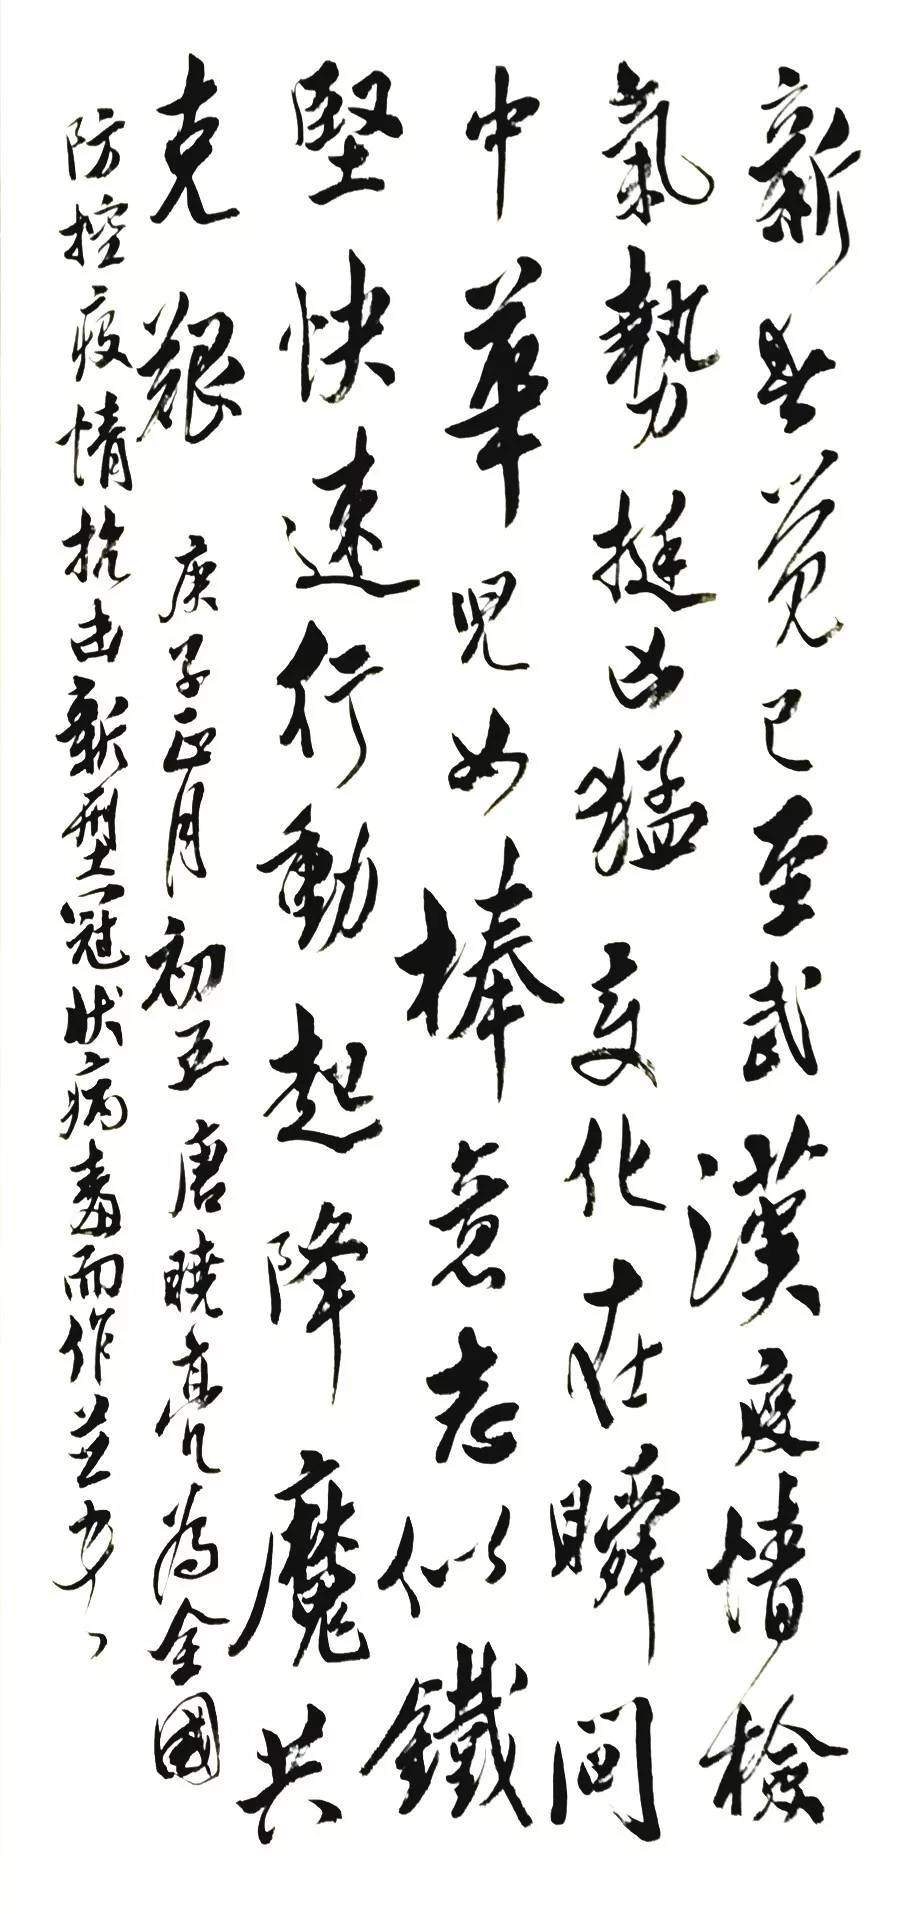 新春觉已至武漢疫情檢
氣勢挺凶猛变化在瞬间
中華児女棒意志似鐵
堅快速行動起降魔共
克艱
庚子正月初五唐曉亮为全國
防控疫情抗击新型冠状病毒而作并书